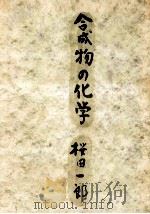 合成物の化学
桜田一郎